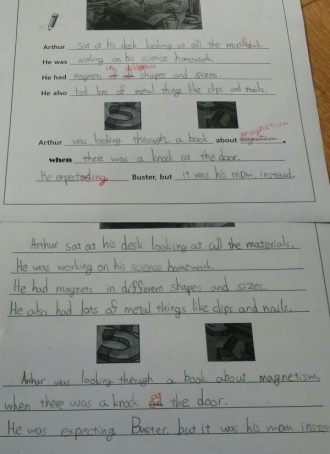 Arthur sat at his desk looking at all the materials.
He was working on his science homework.
He had magnets in different shapes and sizes.
He also had lots of metal things like clips and nails.
Arthur was looking through a book about magnetism.
when there was a knock as the door.
He expecting Buster, but it was his mom, instead.
Arthur sat at his desk looking at all the materials.
He was working on his science homework.
He had magnets in different shapes and sizes.
He also had lots of metal things like clips and nails.
Arthur was looking through a book about magnetism
when there was a knock at the door.
He was expecting Buster, but it was his mom